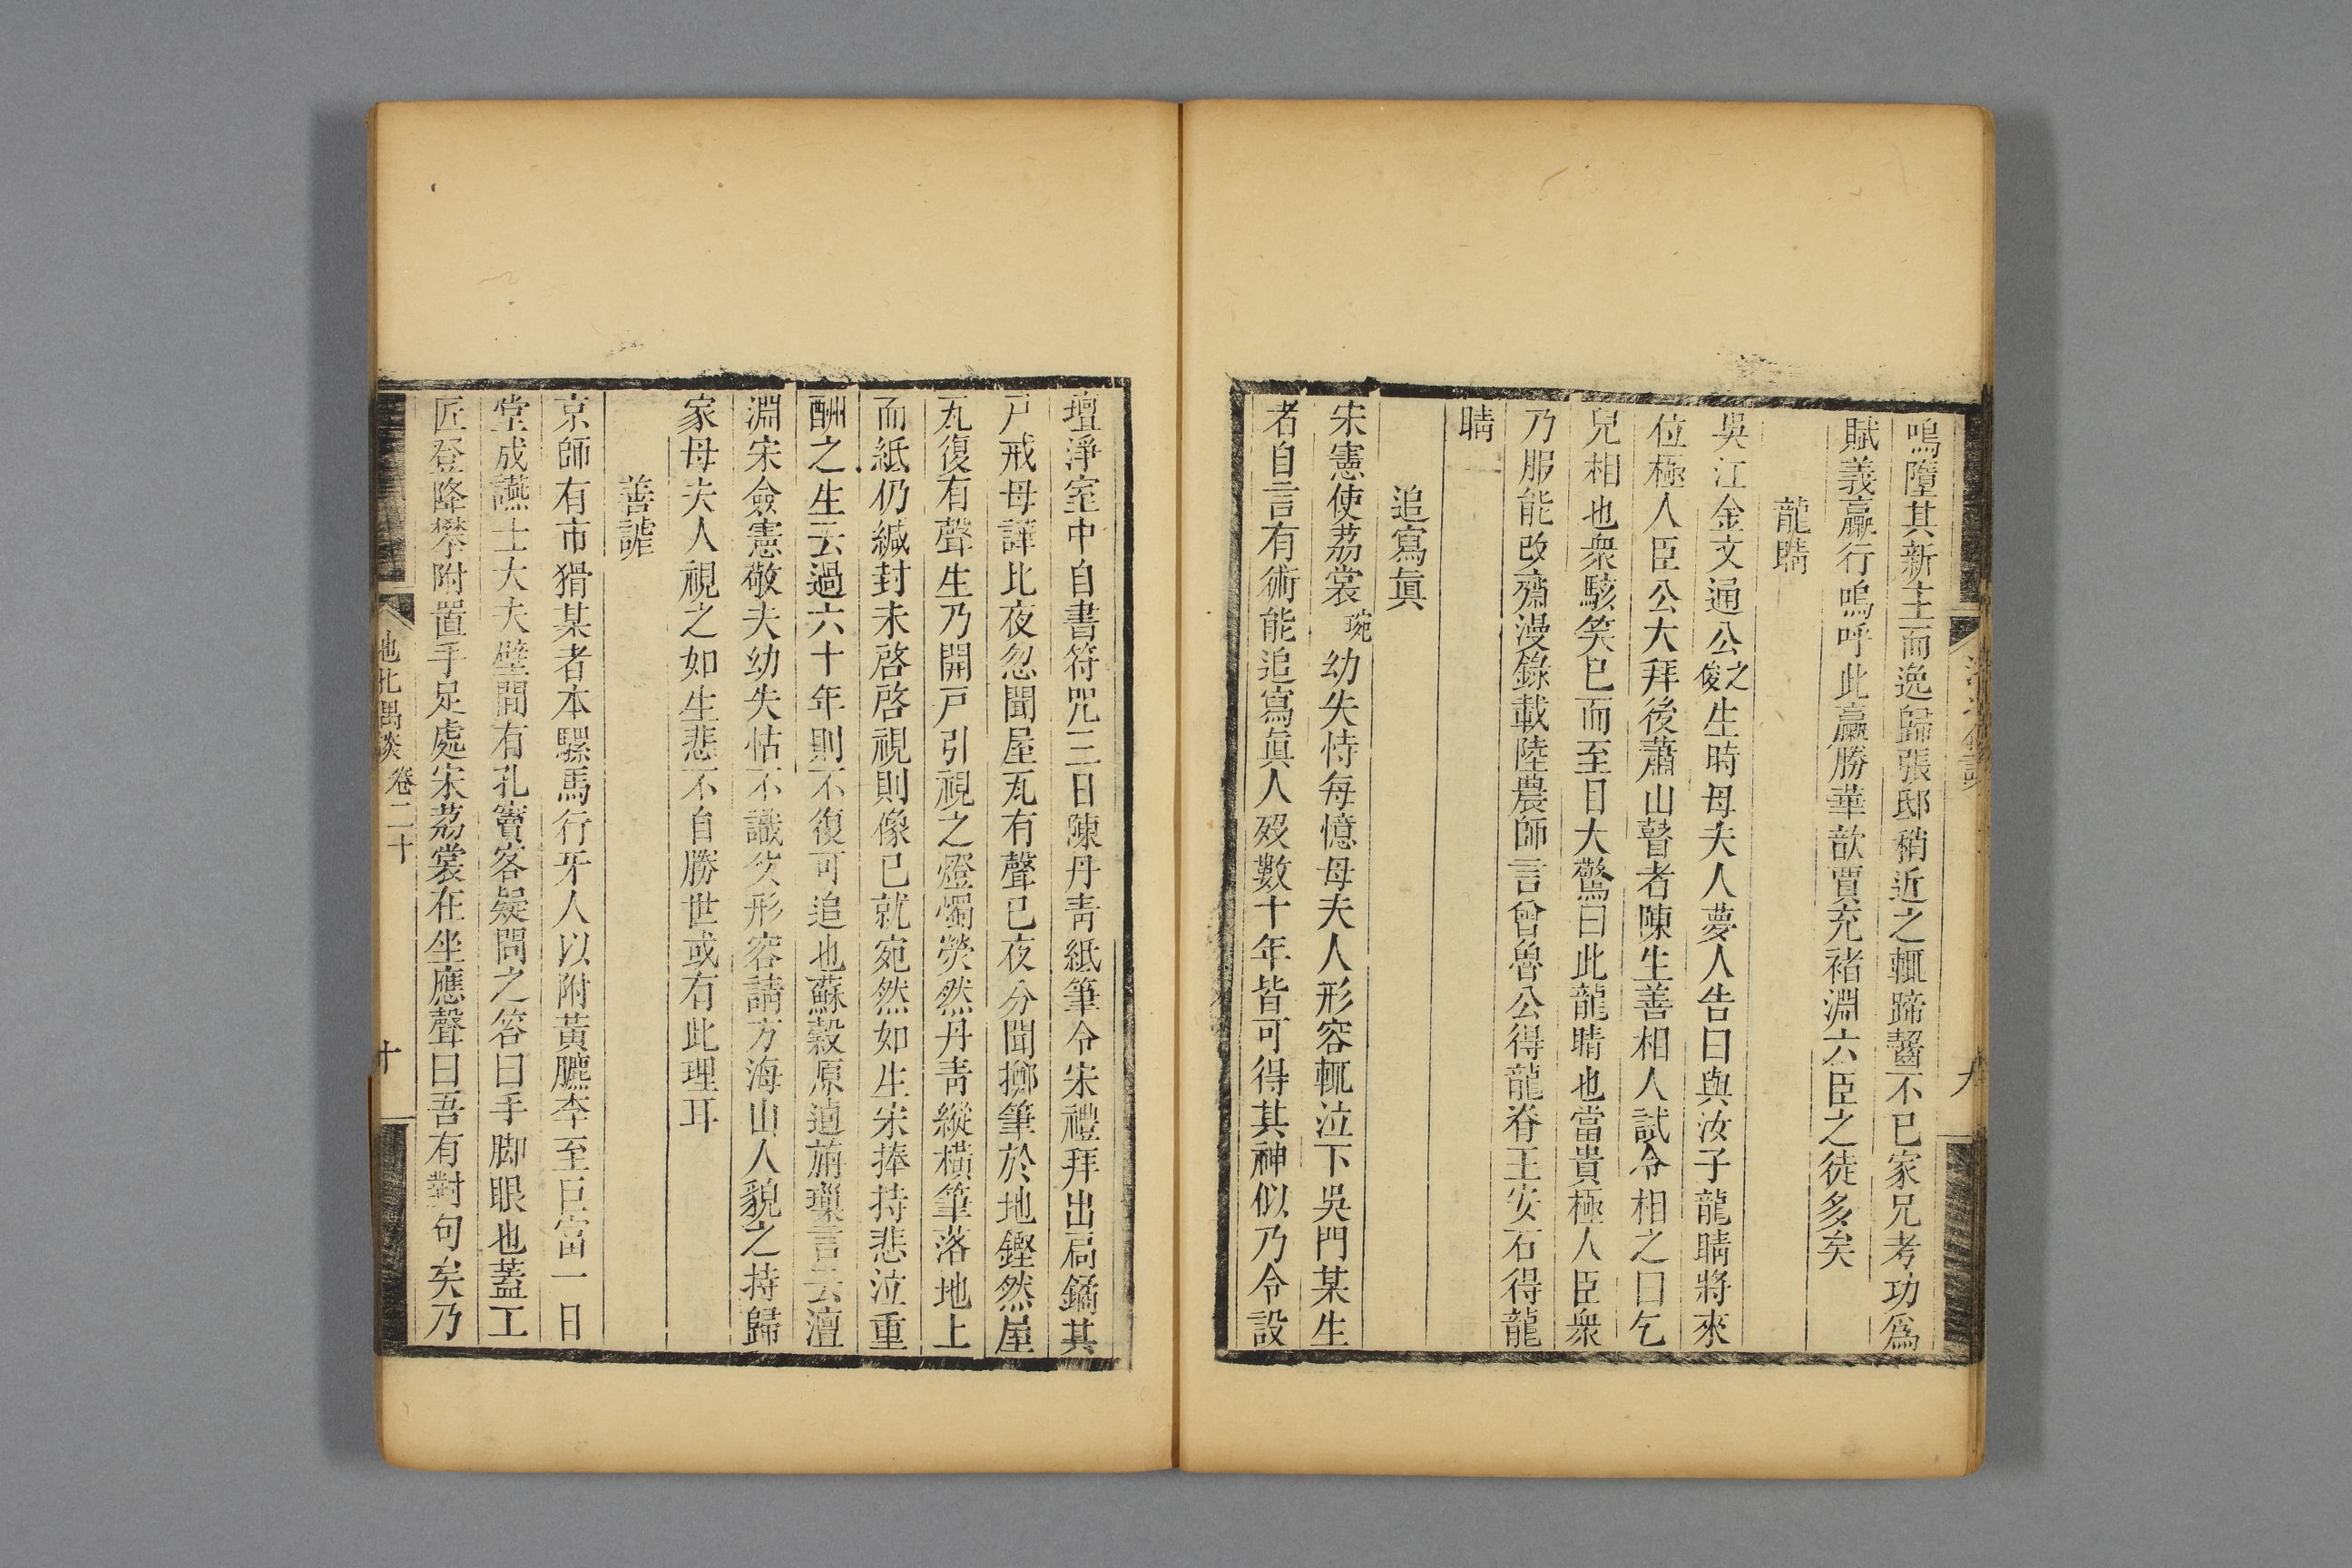 嗚墮其新主而逸歸張邸稍近之輒蹄齧不已家兄考功爲
賦義驘行嗚呼此驘勝華歆賈充褚淵六臣之徒多矣
龍睛
吳江金文通公之俊生時母夫人夢人告曰與汝子龍睛將來
位極人臣公大拜後蕭山瞽者陳生善相人試令相之曰乞
兒相也衆駭笑已而至目大驚曰此龍睛也當貴極人臣衆
乃服能改齋漫錄載陸農師言曾魯公得龍脊王安石得龍
睛
追寫眞
宋憲使荔裳琬幼失恃每憶母夫人形容輒泣下吳門某生
者自言有術能追寫眞人歿數十年皆可得其神似乃令設
壇淨室中自書符咒三日陳丹青紙筆令宋禮拜出扃鐍其
戸戒毋譁比夜忽聞屋瓦有聲已夜分聞擲筆於地鏗然屋
瓦復有聲生乃開戸引視之燈燭熒然丹青縱橫筆落地上
而紙仍緘封未啓啓視則像已就宛然如生宋捧持悲泣重
酬之生云過六十年則不復可追也蘇穀原逌旃璅言云澶
淵宋僉憲敬夫幼失怙不識父形容請方海山人貌之持歸
家母夫人視之如生悲不自勝世或有此理耳
善謔
京師有市猾某者本騾馬行牙人以附黃膘李至巨富一日
堂成讌士大夫壁間有孔竇客疑問之答曰手脚眼也蓋工
匠登降攀附置手足處宋荔裳在坐應聲曰吾有對句矣乃
池北偶談 卷二十 十